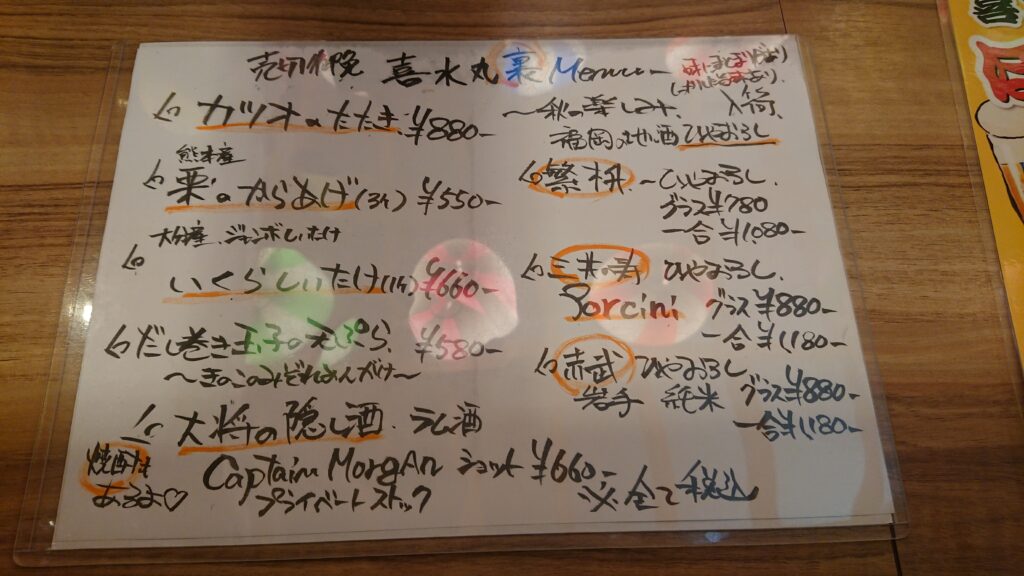 売切御免 喜水丸 裏 Menu
カツオのたたき ¥880-
熊本産
栗のからあげ(3ヶ) ¥550-
大分産 ジャンボしいたけ
いくらしいたけ(1ヶ) ¥660-
だし巻き玉子の天ぷら ¥580-
〜きのこのみぞれあんかけ〜
大将の隠し酒 ラム酒
焼酎も
あるよ♡
Captain Morgan ショット ¥660-
プライベートストック
〜秋の楽しみ 入荷
福岡の地酒 ひやおろし
繁桝 〜ひやおろし
グラス¥780
一合¥1,080-
三井の寿 ひやおろし
Porcini グラス¥880-
一合¥1180-
赤武 ひやおろし
岩手 純米 グラス¥880-
一合¥1180-
※全て税込